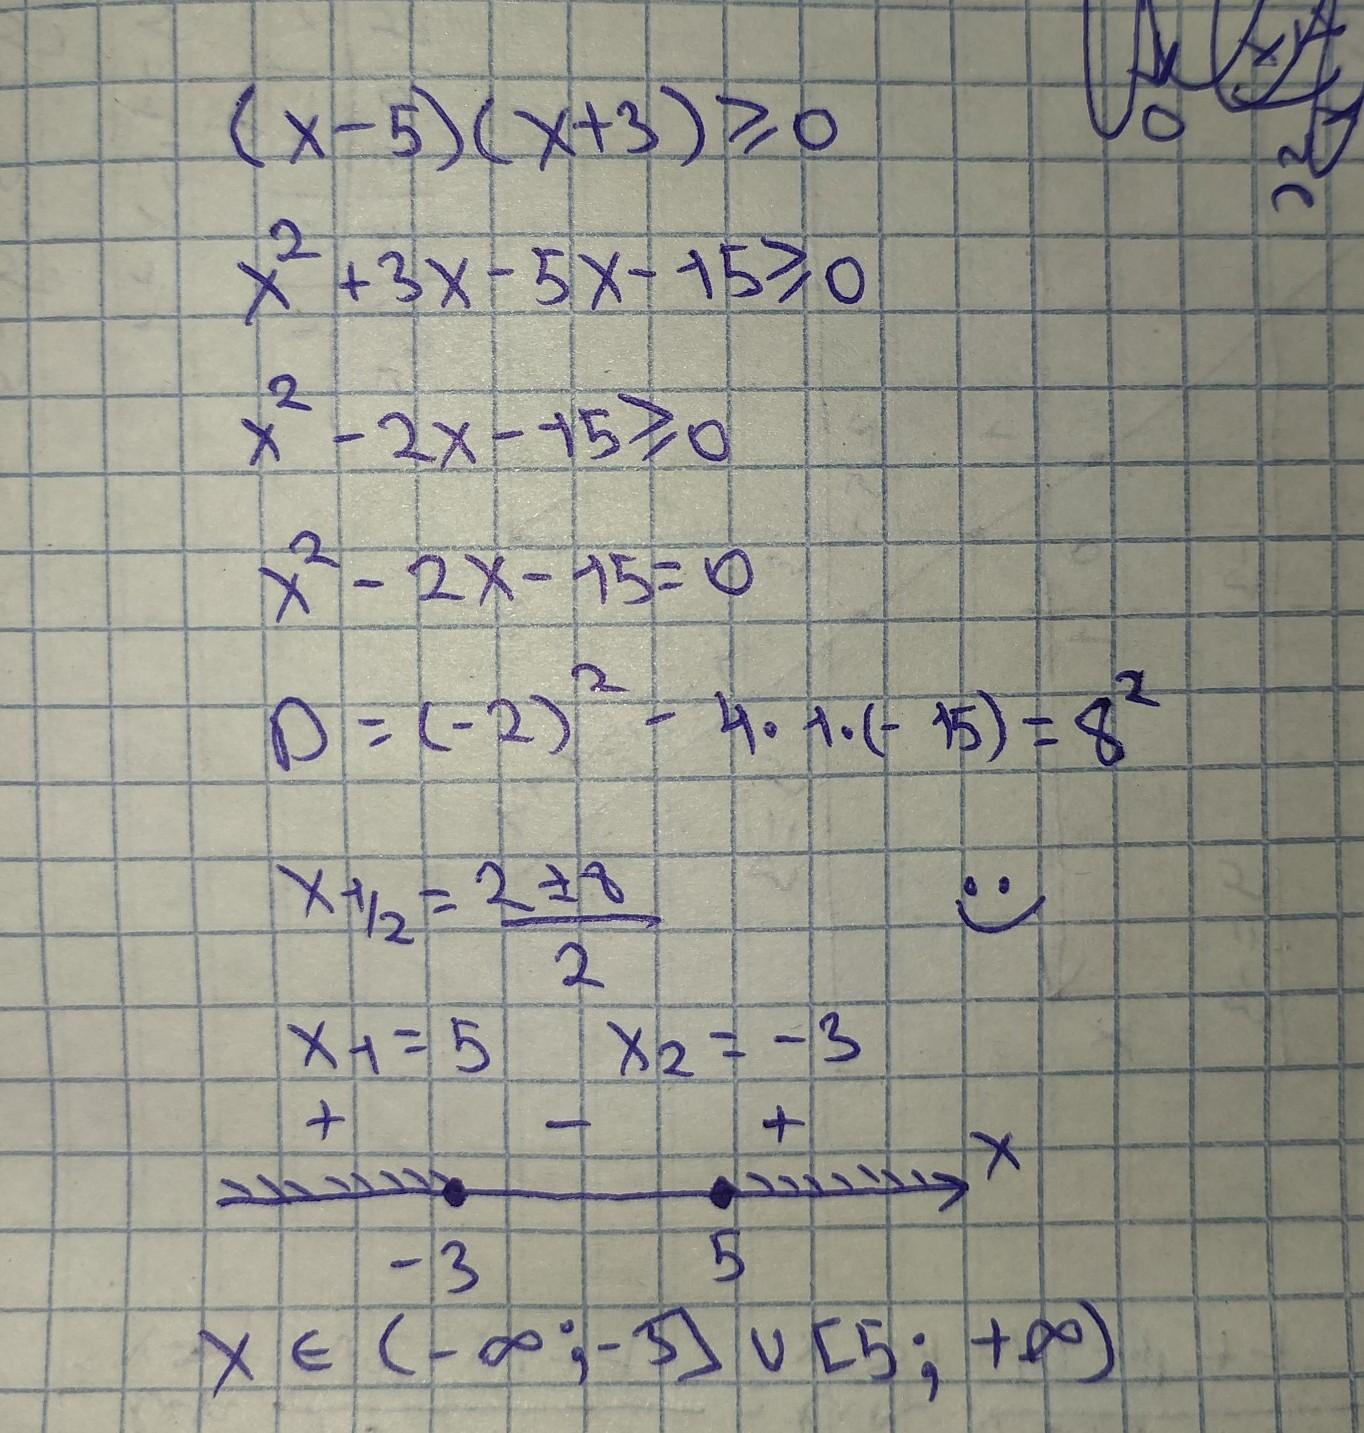 (x-5)(x+3)⩾0
x² +3x-5x-15⩾0
x² -2x-15⩾0
x² - 2x-15=0
D = (-2)² - 4·1·(-15)=8²
x₁/₂ = (2±8)/2
x₁=5 x₂ = -3
+ - +
x
-3 5
x ∈ (-∞;-3] ∪ [5; +∞)